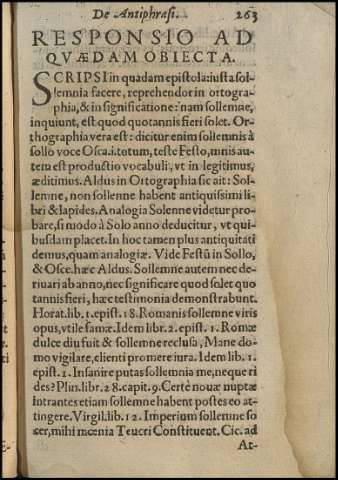 De Antiphrasi. 263
RESPONSIO AD
QVÆDAM OBIECTA.
SCRIPSI in quadam epistola: iusta sol-
lemnia facere, reprehendor in ortogra-
phia, & in significatione: nam sollemne,
inquiunt, est quod quotannis fieri solet. Or-
thographia vera est: dicitur enim sollemnis à
sollo voce Osca. i. totum, teste Festo, mnis au-
tem est productio vocabuli, vt in legitimus,
æditimus. Aldus in Ortographia sic ait: Sol-
lemne, non sollenne habent antiquissimi li-
bri & lapides. Analogia Solenne videtur pro-
bare, si modo à Solo anno deducitur, vt qui-
busdam placet. In hoc tamen plus antiquitati
demus, quam analogiæ. Vide Festũ in Sollo,
& Osce. hæc Aldus. Sollemne autem nec de-
riuari ab anno, nec significare quod solet quo
tannis fieri, hæc testimonia demonstrabunt.
Horat. lib. 1. epist. 18. Romanis sollemne viris
opus, vtile famæ. Idem libr. 2. epist. 1. Romæ
dulce diu fuit & sollemne reclusa, Mane do-
mo vigilare, clienti promere iura. Idem lib. 1.
epist. 1. Insanire putas sollemnia me, neque ri
des? Plin. libr. 28. capit. 9. Certè nouæ nuptæ
intrantes etiam sollemne habent postes eo at-
tingere. Virgil. lib. 12. Imperium sollemne so
cer, mihi mœnia Teucri Constituent. Cic. ad
At-